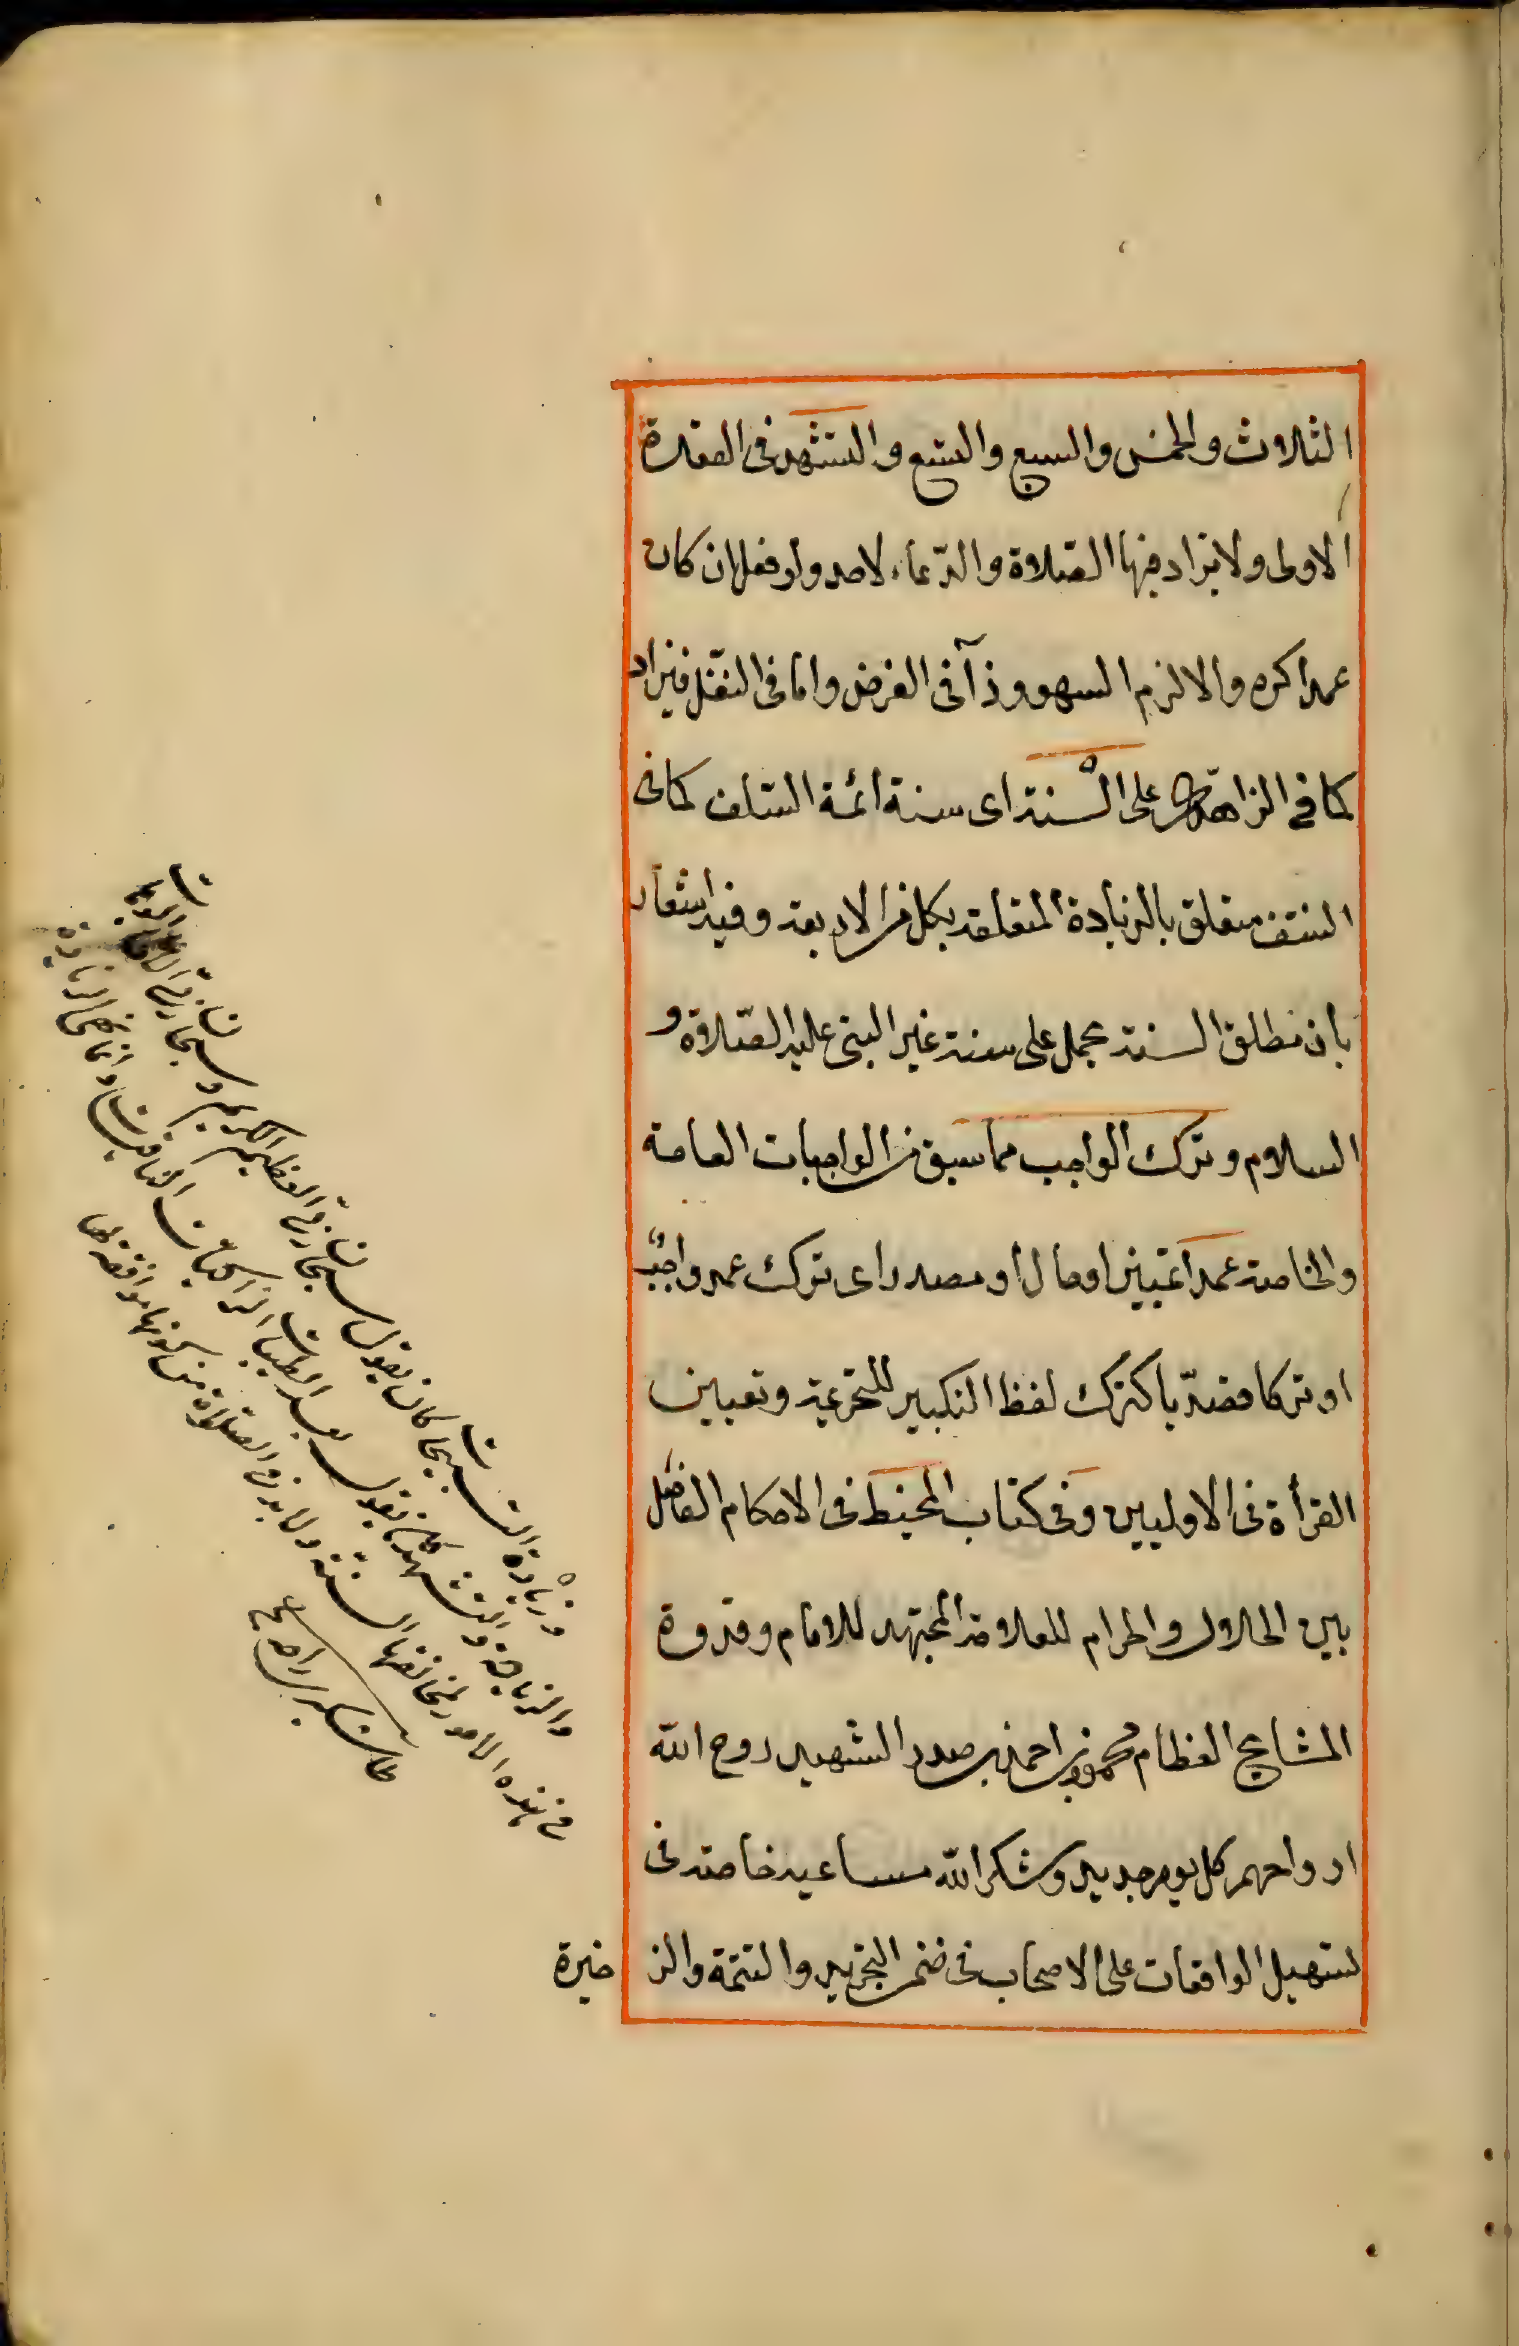 الثلاث والخمس والسبع والتسع والتشهد فى القعدة
الاولى ولا يزاد فيها الصّلاة والدّعاء لاحد ولو فعل ان كان
عمدا كره والا لزم السهو وذا فى الفرض واما فى النفل فيزاد
كما فى الزاهدى على السنة اى سنة ائمة السّلف كما فى
النتف متعلق بالزيادة المتعلقة بكل من الاربعة وفيه اشعار
بان مطلق السنة يحمل على سنة غير النبى عليه الصّلاة و
السلام وترك الواجب مما سبق من الواجبات العامة
والخاصة عمدا تمييز او حال او مصدر اى ترك عمد واجب
او تركا قصديا كترك لفظ التكبير للتحريمة وتعيين
القرأة فى الاوليين وفى كتاب المحيط فى الاحكام الفاصل
بين الحلال والحرام للعلامة المجتهد للامام وقدوة
المشايخ العظام محمود بن احمد بن صدر الشهيد روح الله
ارواحهم كل يوم جديد وشكر الله مساعيه خاصة فى
تسهيل الواقعات على الاصحاب فى ضمن التجريد والتتمة والذ خيرة
وزيادة التسبيحات كان يقول سبحان ربى العظيم الكريم وسبحان ربى الاعلى
والزيادة والتشهد كان يقول بعد الطيبات الزاكيات الناميات وانما كره الزيادة
فى هذه الامور لمخالفتها السنة